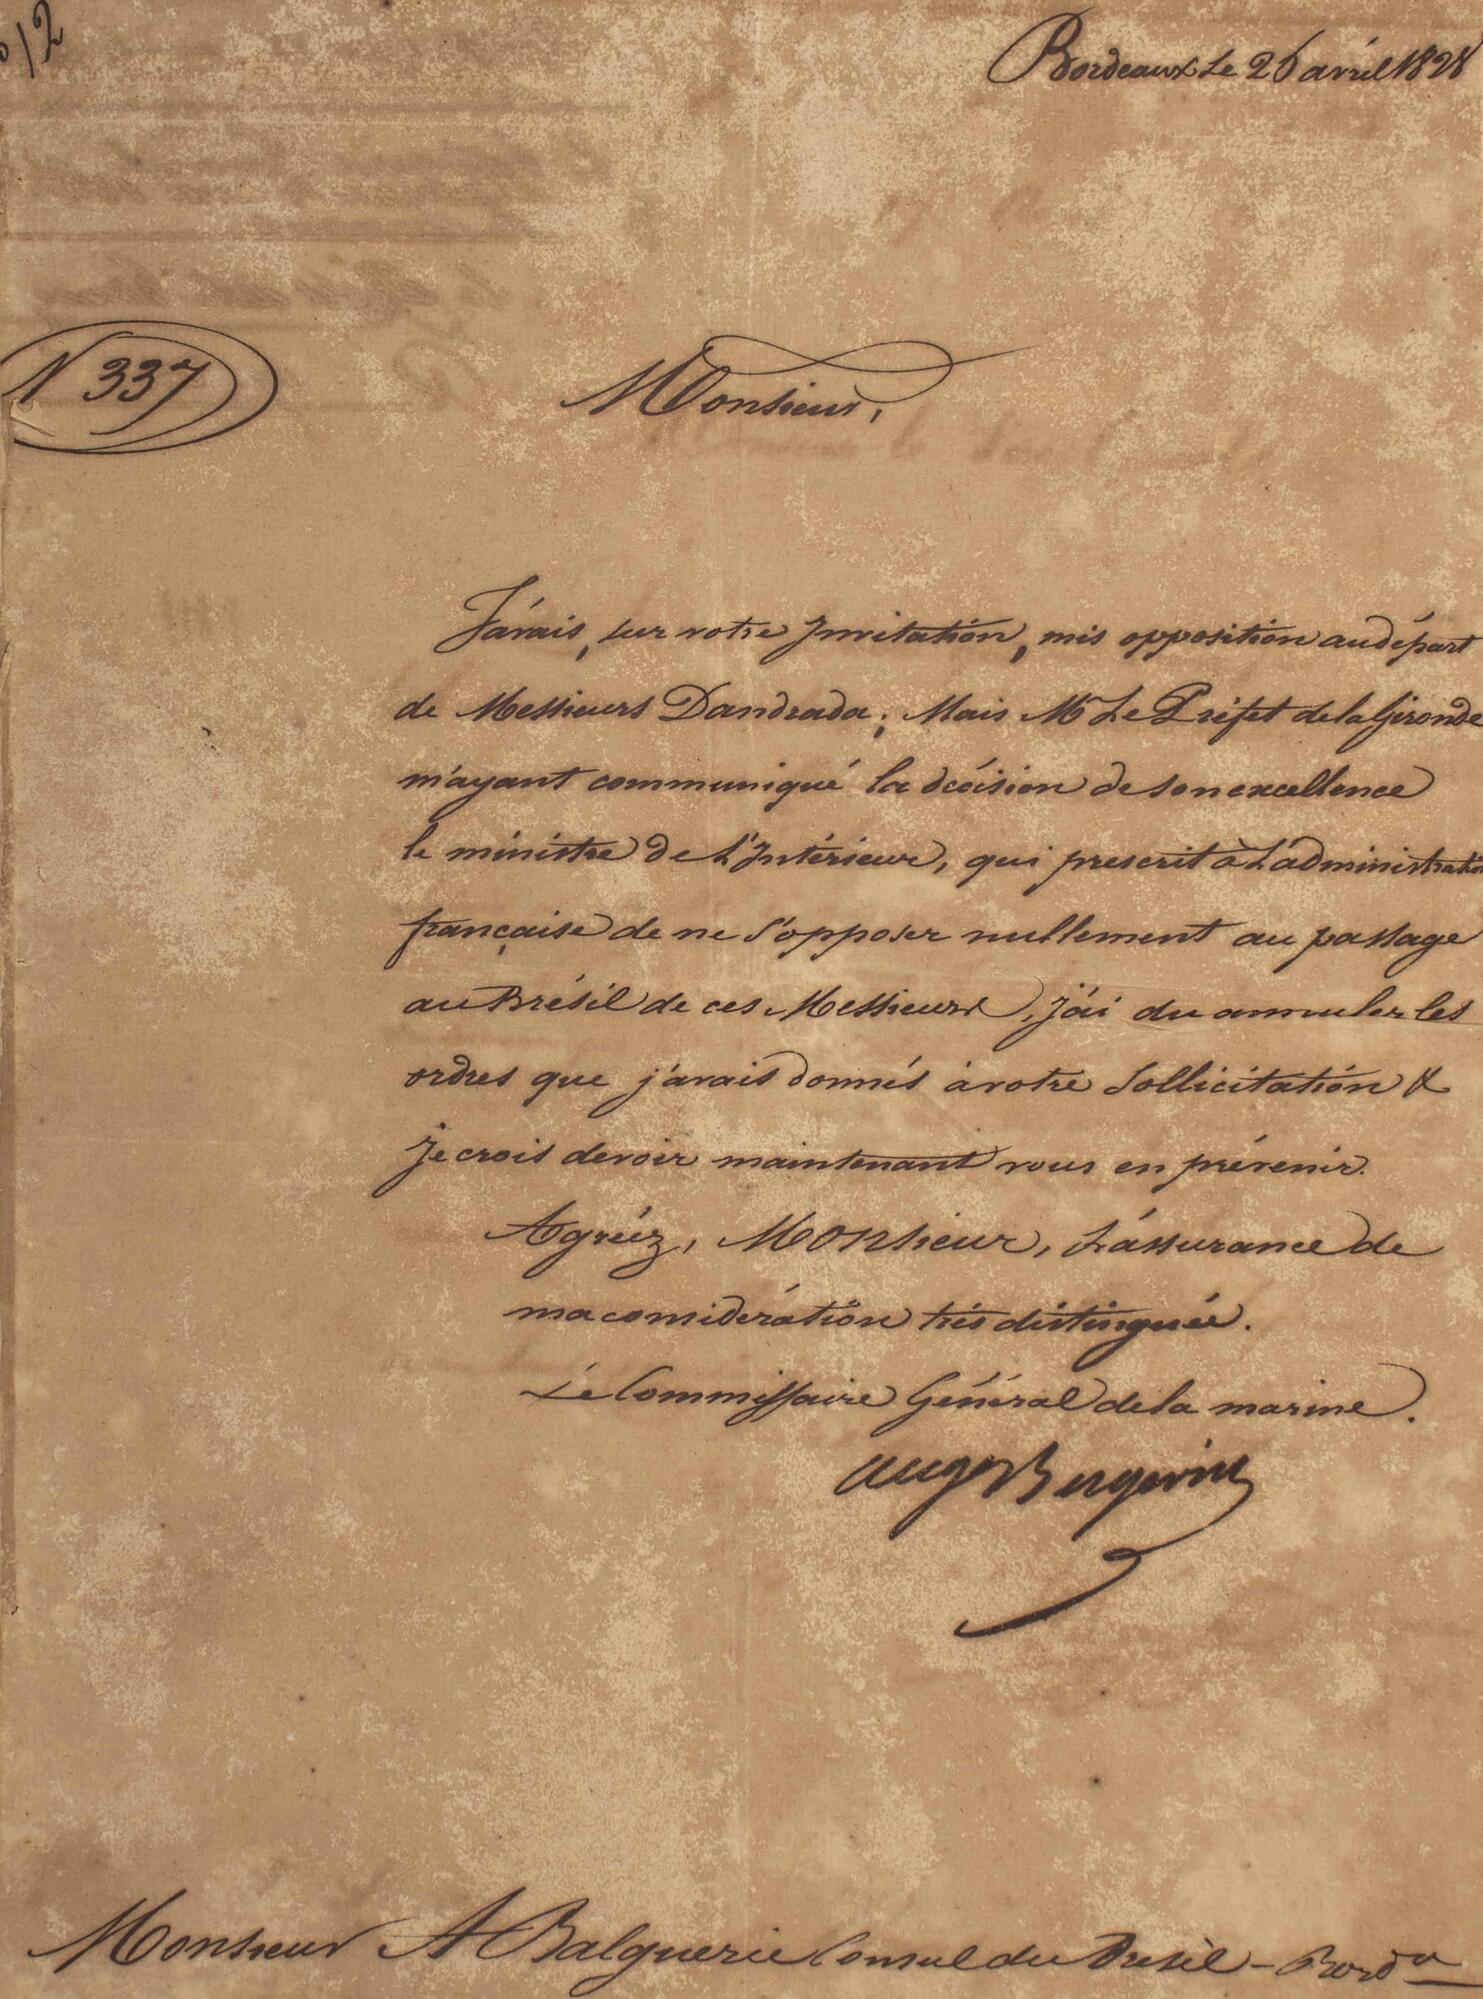 12
Bordeaux Le 26 avril 1828
N 337
Monsieur,
J'avais, sur votre Invitation, mis opposition au départ
de Messieurs Dandrada; Mais Mr Le Préfet de la Gironde
m'ayant communiqué la décision de son excellence
le ministre de L'Intérieur, qui prescrit à L'administration
française de ne s'opposer nullement au passage
au Brésil de ces Messieurs, j'ai du annuler les
ordres que j'avais donnés à votre Sollicitation &
Je crois devoir maintenant vous en prévenir.
Agréez, Monsieur, L'assurance de
ma considération très distinguée.
Le Commissaire Général de la marine.
Auge Bergevin
Monsieur A Balguerie Consul du Bresil - Bordx